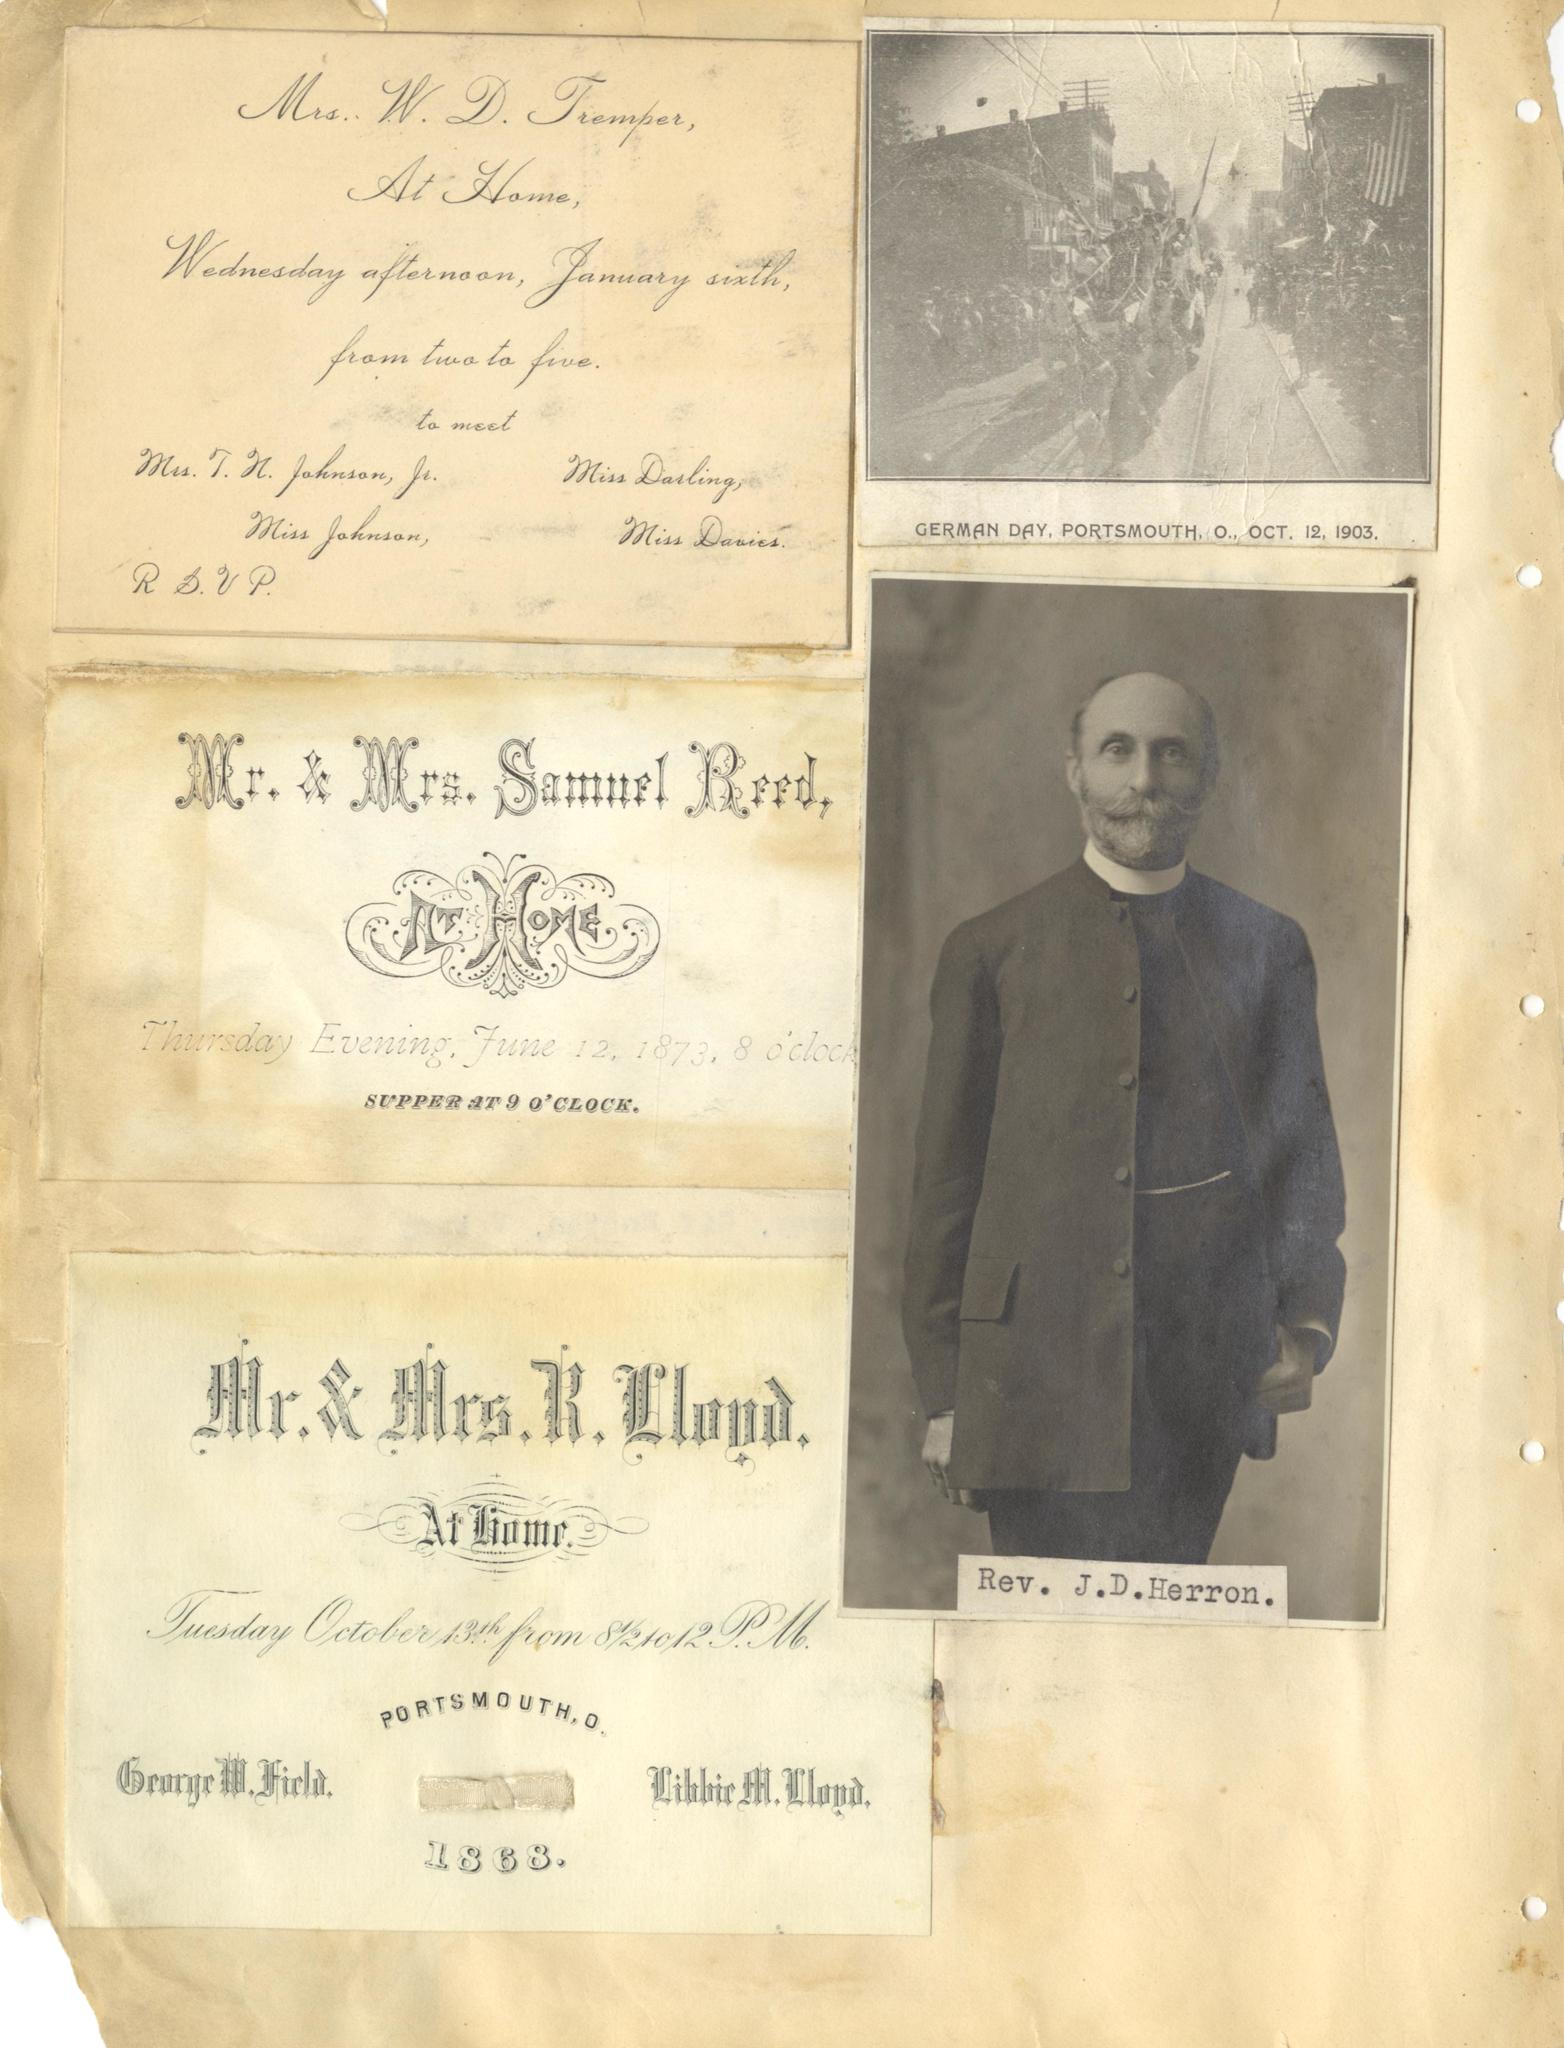 Mrs. W. D. Tremper,
At Home,
Wednesday afternoon, January sixth,
from two to five.
to meet
Mrs. T. N. Johnson, Jr. Miss Darling,
Miss Johnson, Miss Davies.
R S. V P.
GERMAN DAY, PORTSMOUTH, O., OCT. 12, 1903.
Mr. & Mrs. Samuel Reed,
AT HOME
Thursday Evening, June 12, 1873, 8 o'clock
SUPPER AT 9 O'CLOCK.
Rev. J.D.Herron.
Mr. & Mrs. R. Lloyd.
At Home.
Tuesday October 13th from 8½ to 12 P. M.
PORTSMOUTH, O.
George W. Field. Libbie M. Lloyd.
1868.